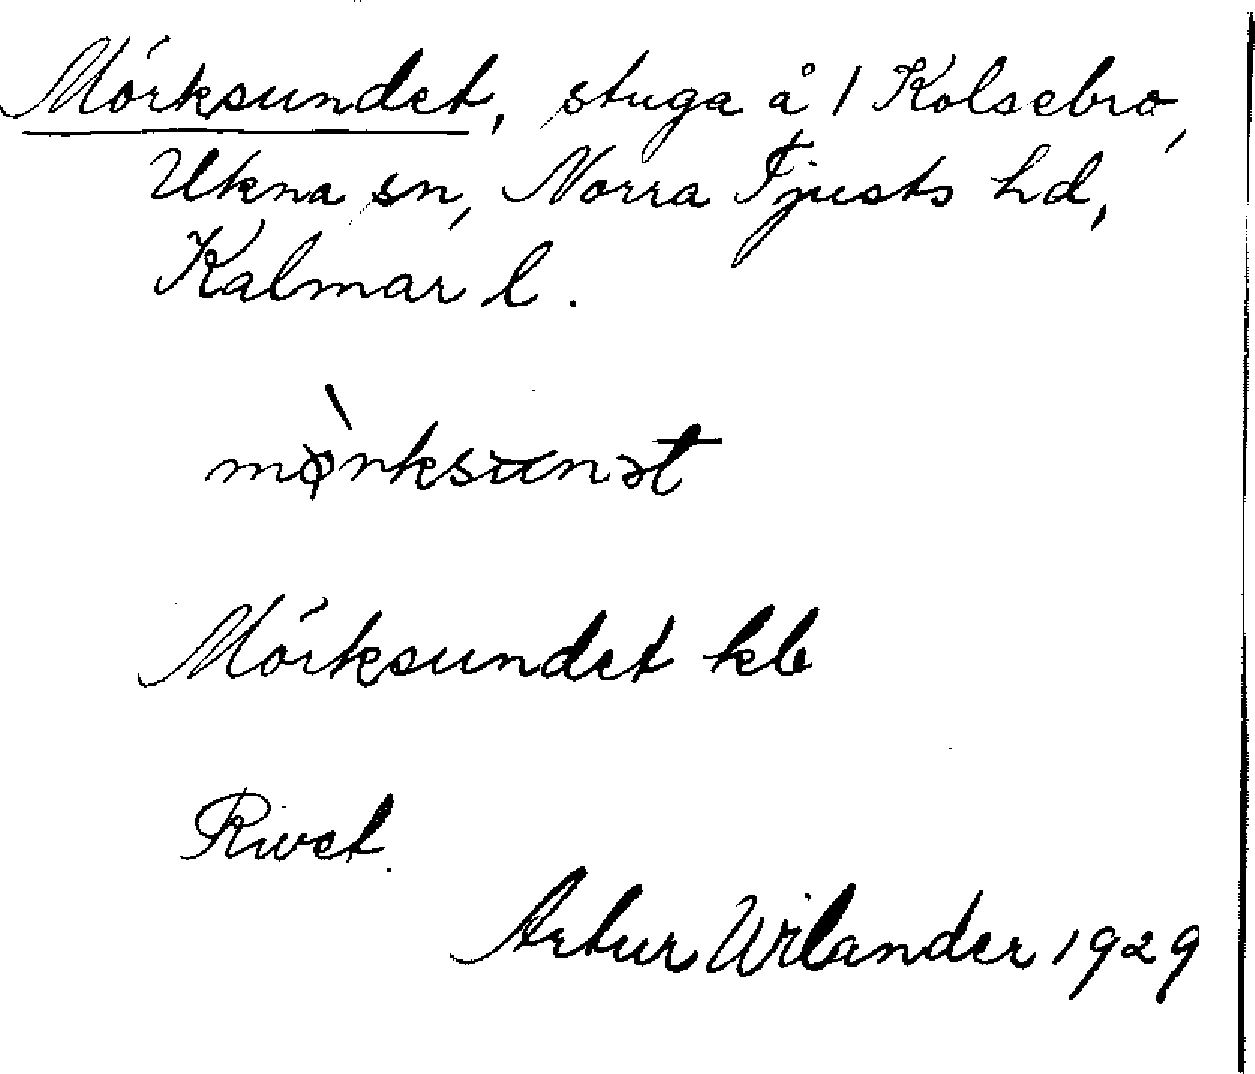 Mörksundet, stuga å 1 Kolsebro,
Ukna sn, Norra Tjusts hd,
Kalmar l.
mø̀rksunət
Mörksundet kb
Rivet.
Artur Wilander 1929